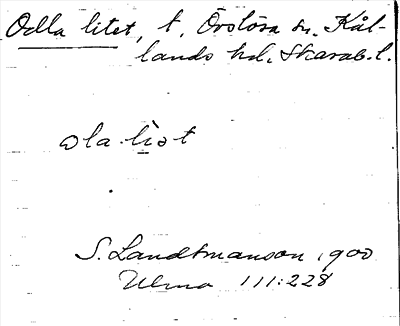 Odla litet, t. Örslösa sn. Kål-
lands hd. Skarab. l.
ɷla lìst
S. Landtmanson 1900
Ulma 111:228